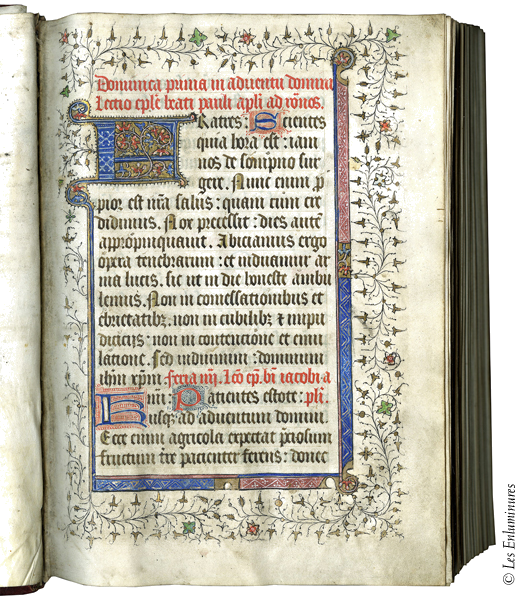 Dominica prima in adventu domini
Lectio epl'e beati pauli apl'i ad ro'nos.
FRatres: Scientes
quia hora est: iam
nos de sompno sur
gere. Nunc enim p
pior est n'ra salus: quam cum cre
didimus. Nox precessit: dies aute'
appropinquavit. Abiciamus ergo
opera tenebrarum: et induamur ar
ma lucis. sic ut in die honeste ambu
lemus. Non in comessationibus et
ebrietatibz. non in cubilibus & inpu
diciciis: non in contencione et emu
latione. Sed induimini: dominum
ihm xpm. feria iiij. Lc'o ep. bi' iacobi a
FRatres: Patientes estote: pli.
usqz ad adventum domini.
Ecce enim agricola expectat p'ciosum
fructum t're pacienter ferens: donec
© Les Enluminures